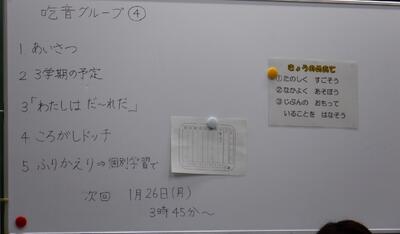 吃音グループ ④
1 あいさつ
2 3学期の予定
3 「わたしは だ〜れだ」
4 ころがしドッチ
5 ふりかえり⇒個別学習で
次回 1月26日(月)
3時45分〜
きょうのめあて
①たのしく すごそう
②なかよく あそぼう
③じぶんの おもって
いることを はなそう